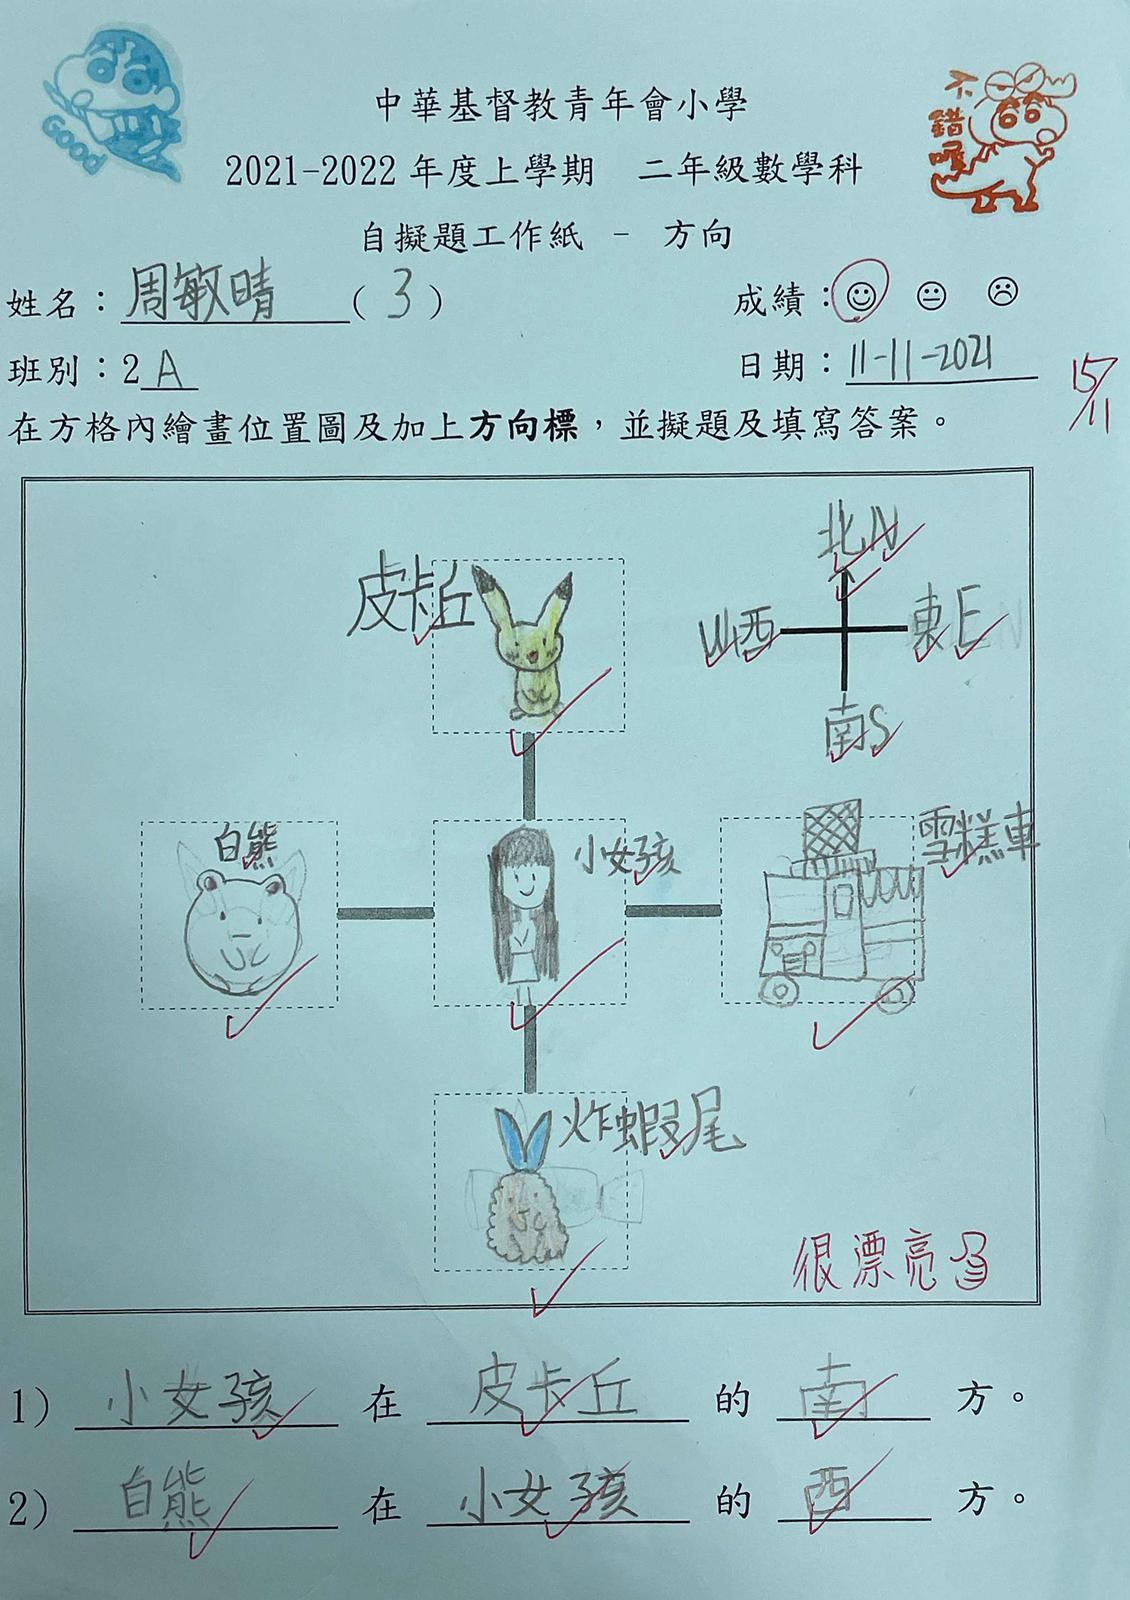 GOOD
不錯喔
中華基督教青年會小學
2021-2022 年度上學期 二年級數學科
自擬題工作紙 - 方向
姓名：周敏晴（3）
成績：
班別：2A
日期：11-11-2021
15/11
在方格內繪畫位置圖及加上方向標，並擬題及填寫答案。
北N
皮卡丘
W西
東E
南S
白熊
小女孩
雪糕車
炸蝦尾
很漂亮
1) 小女孩 在 皮卡丘 的 南 方。
2) 白熊 在 小女孩 的 西 方。